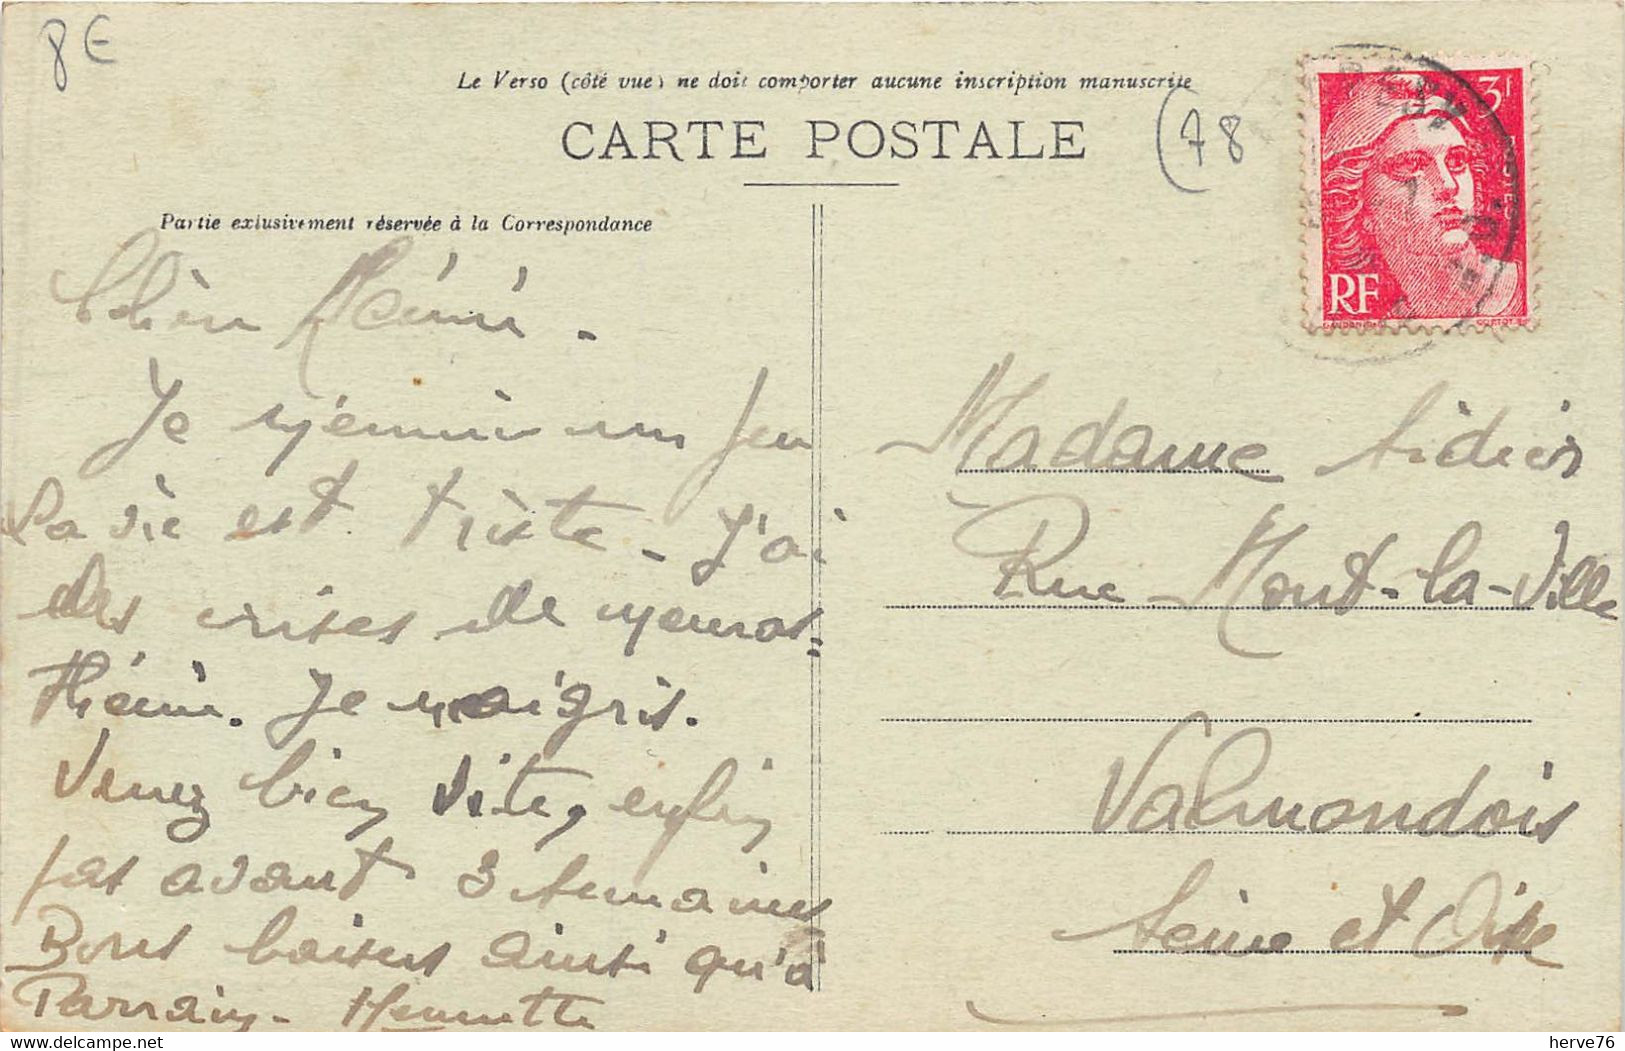 8€
Le Verso (côté vue) ne doit comporter aucune inscription manuscrite
CARTE POSTALE
(78
3f
POSTES
RF
Partie exlusivement réservée à la Correspondance
Je m'ennuie un peu
La vie est triste - J'ai
des crises de neuras=
thénie. Je maigris.
Venez bien vite, enfin
pas avant 3 semaines
Bons baisers ainsi qu'à
Parrain - Henriette
Madame
Rue Mont-la-Ville
Valmondois
Seine et Oise
herve76